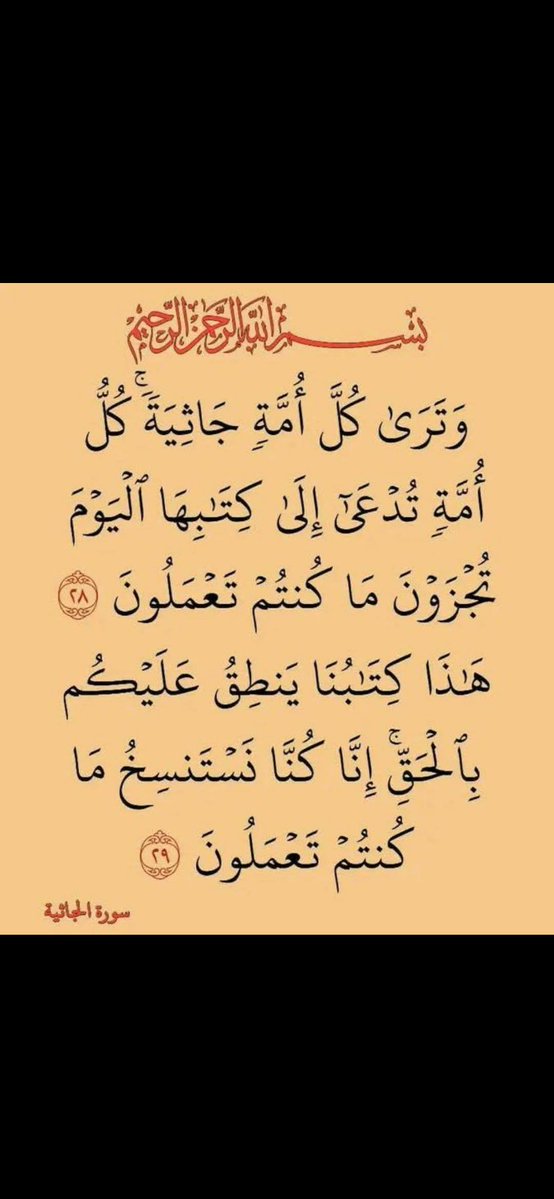 بِسْمِ اللَّهِ الرَّحْمَٰنِ الرَّحِيمِ
وَتَرَىٰ كُلَّ أُمَّةٖ جَاثِيَةٗۚ كُلُّ
أُمَّةٖ تُدۡعَىٰٓ إِلَىٰ كِتَٰبِهَا ٱلۡيَوۡمَ
تُجۡزَوۡنَ مَا كُنتُمۡ تَعۡمَلُونَ ٢٨
هَٰذَا كِتَٰبُنَا يَنطِقُ عَلَيۡكُم
بِٱلۡحَقِّۚ إِنَّا كُنَّا نَسۡتَنسِخُ مَا
كُنتُمۡ تَعۡمَلُونَ ٢٩
سورة الجاثية